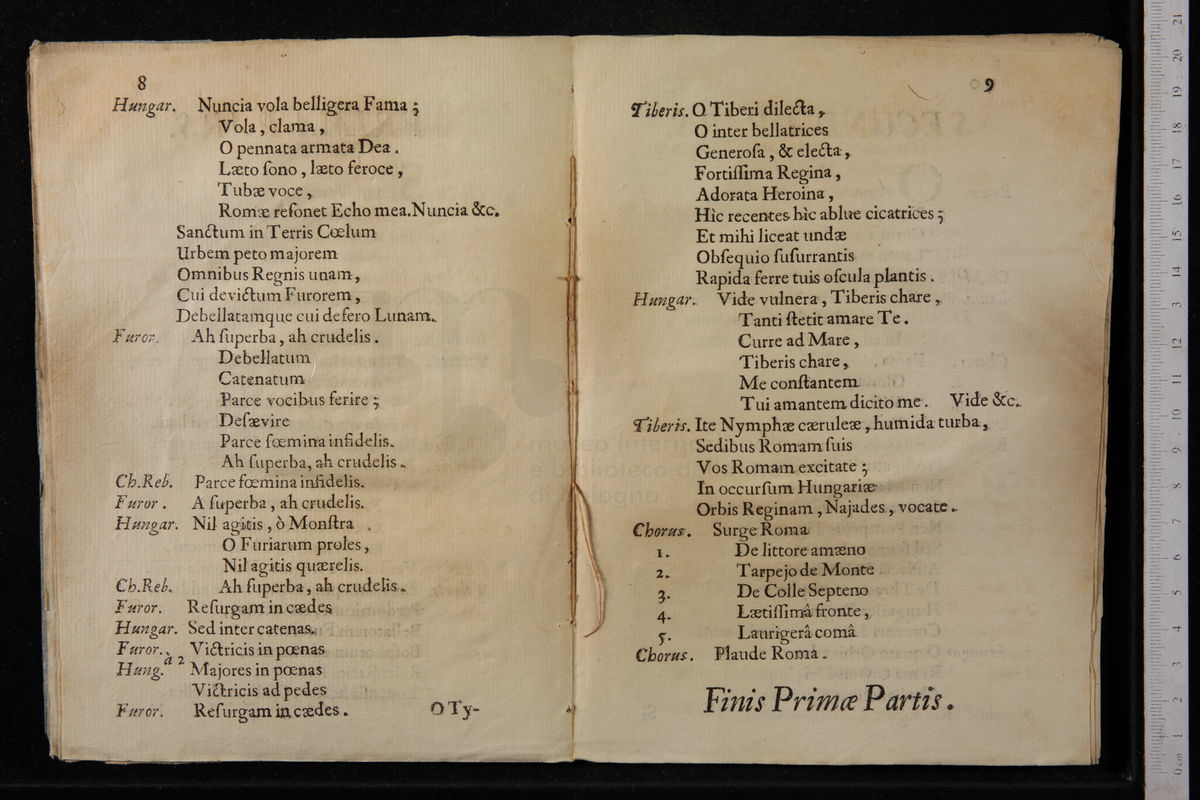 8
Hungar. Nuncia vola belligera Fama ;
Vola , clama ,
O pennata armata Dea .
Læto ſono , læto feroce ,
Tubæ voce ,
Romæ reſonet Echo mea. Nuncia &c.
Sanctum in Terris Cœlum
Urbem peto majorem
Omnibus Regnis unam ,
Cui devictum Furorem ,
Debellatamque cui defero Lunam.
Furor. Ah ſuperba , ah crudelis .
Debellatum
Catenatum
Parce vocibus ferire ;
Deſævire
Parce fœmina infidelis.
Ah ſuperba, ah crudelis .
Ch.Reb. Parce fœmina infidelis.
Furor . A ſuperba , ah crudelis.
Hungar. Nil agitis , ò Monſtra .
O Furiarum proles ,
Nil agitis quærelis.
Ch.Reb. Ah ſuperba, ah crudelis .
Furor. Reſurgam in cædes
Hungar. Sed inter catenas.
Furor. Victricis in pœnas
a 2
Hung. Majores in pœnas
Victricis ad pedes
Furor. Reſurgam in cædes .
O Ty-
9
Tiberis. O Tiberi dilecta ,
O inter bellatrices
Generoſa , & electa ,
Fortiſſima Regina ,
Adorata Heroina ,
Hìc recentes hìc ablue cicatrices ;
Et mihi liceat undæ
Obſequio ſuſurrantis
Rapida ferre tuis oſcula plantis .
Hungar. Vide vulnera , Tiberis chare ,
Tanti ſtetit amare Te .
Curre ad Mare ,
Tiberis chare ,
Me conſtantem
Tui amantem dicito me . Vide &c.
Tiberis. Ite Nymphæ cæruleæ , humida turba ,
Sedibus Romam ſuis
Vos Romam excitate ;
In occurſum Hungariæ
Orbis Reginam , Najades , vocate .
Chorus. Surge Roma
1. De littore amæno
2. Tarpejo de Monte
3. De Colle Septeno
4. Lætiſſimâ fronte ,
5. Laurigerâ comâ
Chorus. Plaude Roma .
Finis Primæ Partis .